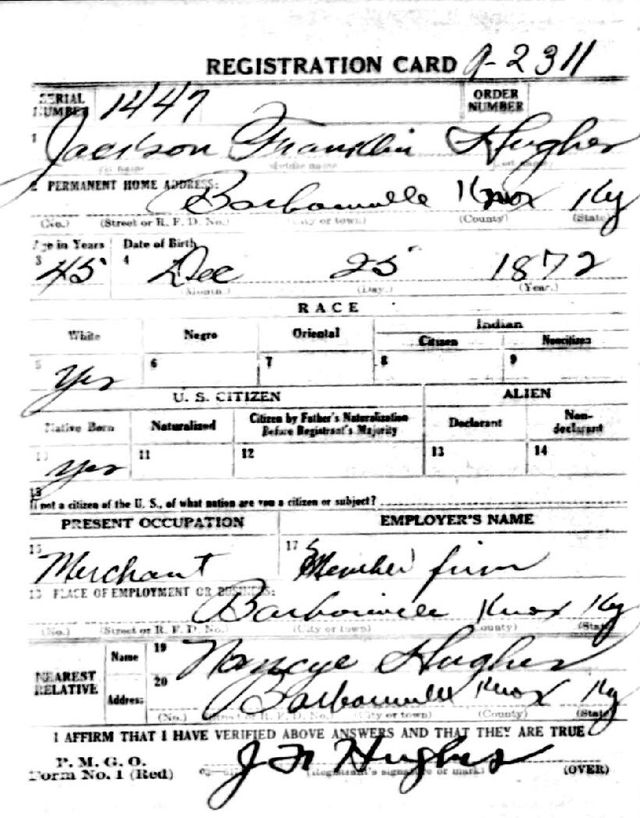 REGISTRATION CARD A-2311
SERIAL NUMBER 1447 ORDER NUMBER
1 Jackson Franklin Hughes
2 PERMANENT HOME ADDRESS: Barbourville Knox Ky
(No.) (Street or R. F. D. No.) (City or town) (County) (State)
Age in Years Date of Birth
3 45 4 Dec 25 1872
(Month.) (Day.) (Year.)
RACE
White Negro Oriental Indian
Citizen Noncitizen
5 Yes 6 7 8 9
U. S. CITIZEN ALIEN
Native Born Naturalized Citizen by Father's Naturalization Before Registrant's Majority Declarant Non-declarant
10 Yes 11 12 13 14
15
If not a citizen of the U. S., of what nation are you a citizen or subject?
PRESENT OCCUPATION EMPLOYER'S NAME
16 Merchant 17 Member firm
18 PLACE OF EMPLOYMENT OR BUSINESS:
Barbourville Knox Ky
(No.) (Street or R. F. D. No.) (City or town) (County) (State)
NEAREST RELATIVE Name 19 Nancye Hughes
Address 20 Barbourville Knox Ky
(No.) (Street or R. F. D. No.) (City or town) (County) (State)
I AFFIRM THAT I HAVE VERIFIED ABOVE ANSWERS AND THAT THEY ARE TRUE
P. M. G. O.
Form No. 1 (Red) J F Hughes
(Registrant's signature or mark) (OVER)